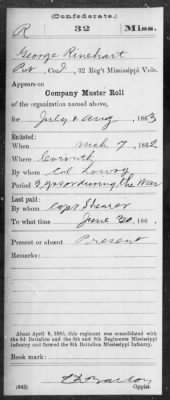 (Confederate.)
R 32 Miss.
George Rinehart
Pvt, Co. I, 32 Reg't Mississippi Vols.
Appears on
Company Muster Roll
of the organization named above,
for July & Aug, 1863
Enlisted:
When Mch 7, 1862
Where Corinth
By whom Col Lowry
Period 3 yrs or during the War
Last paid:
By whom Capt Shearer
To what time June 30, 186 .
Present or absent Present
Remarks:
About April 9, 1865, this regiment was consolidated with
the 3d Battalion and the 5th and 8th Regiments Mississippi
Infantry and formed the 8th Battalion Mississippi Infantry.
Book mark:
(642) Copyist.